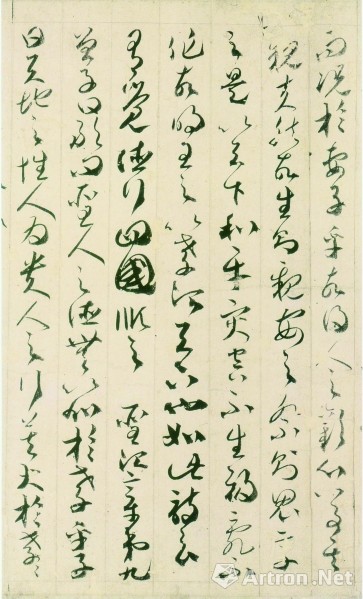 而況於妻子乎故得人之歡心以事其
親夫然故生則親安之祭則鬼享
之是以天下和平災害不生禍亂不
作故明王之以孝治天下也如此詩云
有覺德行四國順之 聖治章第九
曾子曰敢問聖人之德無以加於孝乎子
曰天地之性人為貴人之行莫大於孝〻
Artron.Net